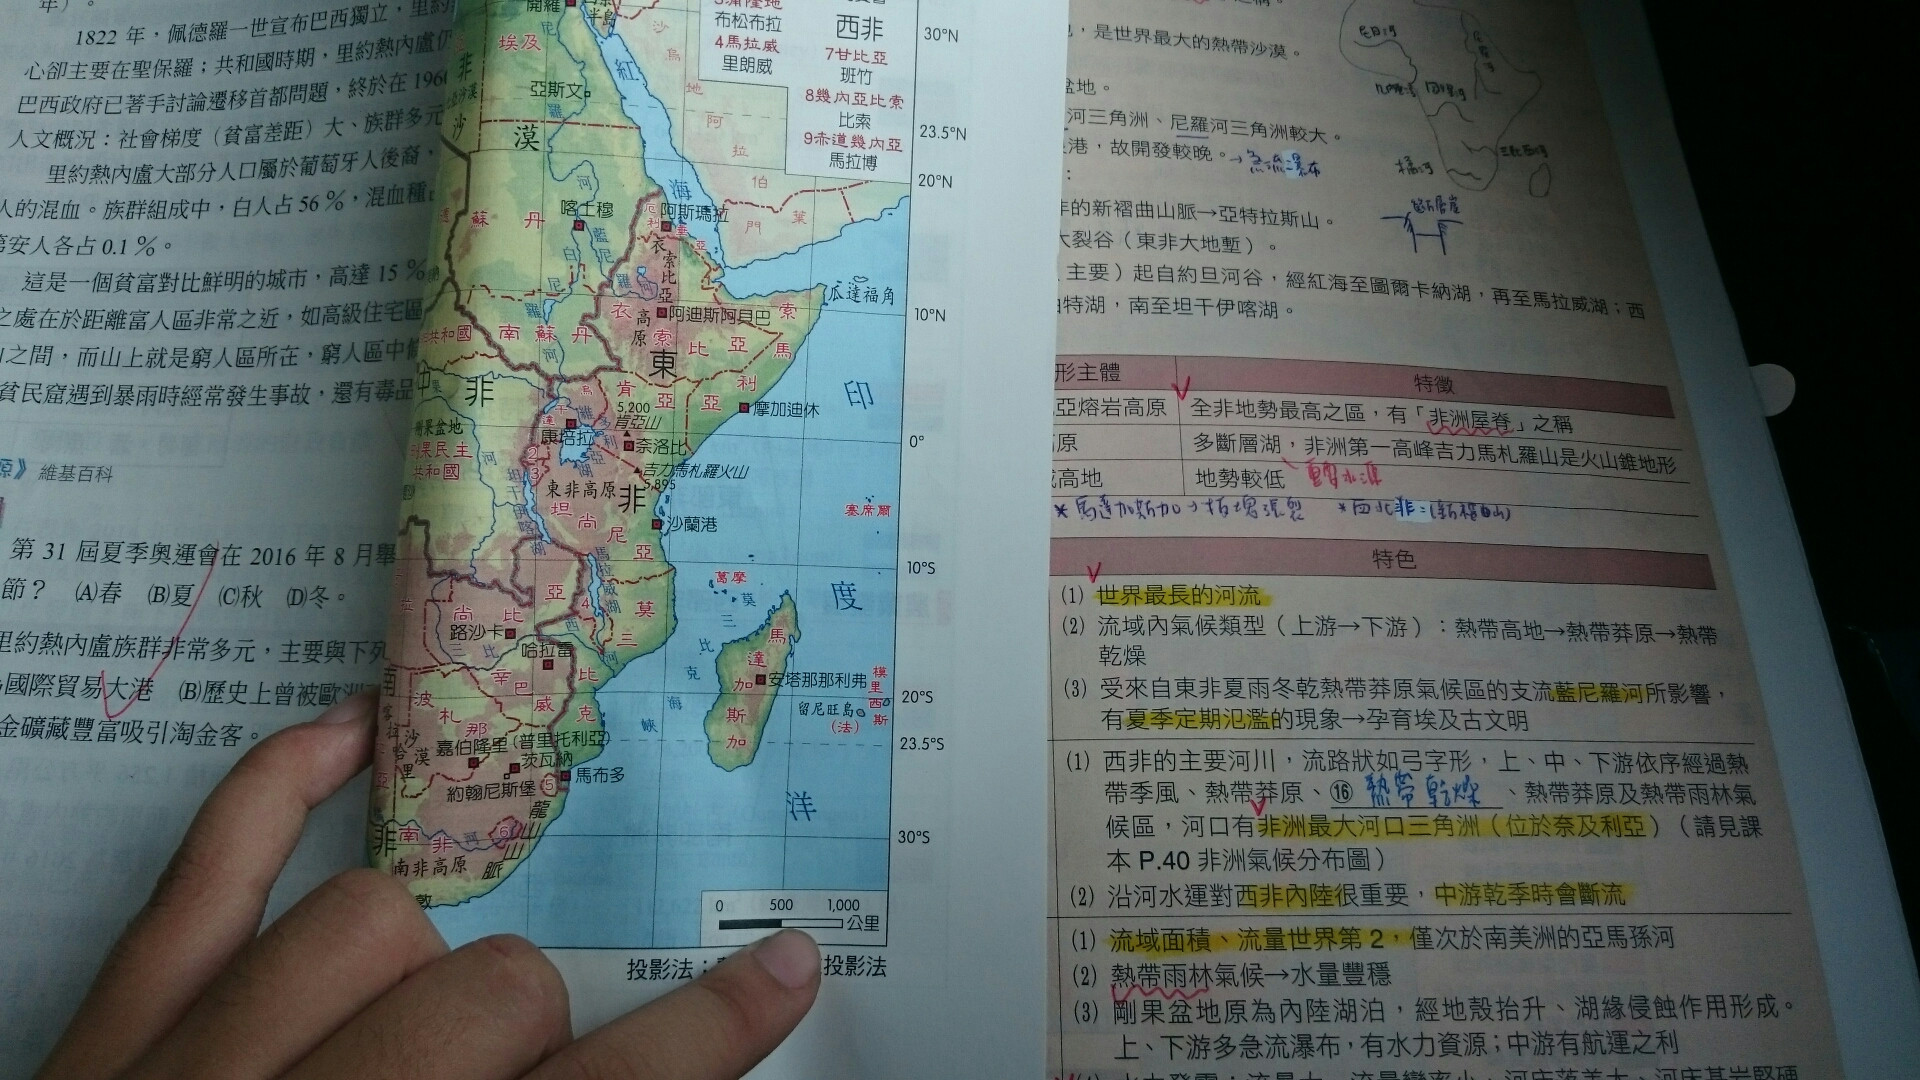 年）。
1822 年，佩德羅一世宣布巴西獨立，里約
心卻主要在聖保羅；共和國時期，里約熱內盧仍
巴西政府已著手討論遷移首都問題，終於在 1960
人文概況：社會梯度（貧富差距）大、族群多元
里約熱內盧大部分人口屬於葡萄牙人後裔，
人的混血。族群組成中，白人占 56 %，混血種
第安人各占 0.1 %。
這是一個貧富對比鮮明的城市，高達 15 %
之處在於距離富人區非常之近，如高級住宅區
之間，而山上就是窮人區所在，窮人區中
貧民窟遇到暴雨時經常發生事故，還有毒品
原》 維基百科
第 31 屆夏季奧運會在 2016 年 8 月舉
節？ (A)春 (B)夏 (C)秋 (D)冬。
里約熱內盧族群非常多元，主要與下列
國際貿易大港 (B)歷史上曾被歐洲
金礦藏豐富吸引淘金客。
開羅
半島
布松布拉
4馬拉威
里朗威
西非
7甘比亞
班竹
8幾內亞比索
比索
9赤道幾內亞
馬拉博
30°N
23.5°N
20°N
10°N
0°
10°S
20°S
23.5°S
30°S
埃及
亞斯文
沙漠
紅海
沙烏地阿拉伯
葉門
蘇丹
喀土穆
阿斯瑪拉
衣索比亞高原
瓜達福角
阿迪斯阿貝巴
衣索比亞
索馬利亞
南蘇丹
共和國
中非
東非
肯亞
5,200
肯亞山
摩加迪休
康培拉
奈洛比
吉力馬札羅火山
5,895
東非高原
坦尚尼亞
沙蘭港
塞席爾
民主
共和國
馬拉威湖
葛摩
莫三比克海峽
尚比亞
路沙卡
哈拉雷
辛巴威
莫三比克
馬達加斯加
安塔那那利弗
模里西斯
留尼旺島
（法）
波札那
嘉伯隆里
(普里托利亞)
茨瓦納
約翰尼斯堡
馬布多
龍山山脈
南非
南非高原
印度洋
0 500 1,000
公里
投影法：
投影法
，是世界最大的熱帶沙漠。
盆地。
河三角洲、尼羅河三角洲較大。
港，故開發較晚。→急流瀑布
的新褶曲山脈→亞特拉斯山。
大裂谷（東非大地塹）。
主要）起自約旦河谷，經紅海至圖爾卡納湖，再至馬拉威湖；西
伯特湖，南至坦干伊喀湖。
形主體 特徵
亞熔岩高原 全非地勢最高之區，有「非洲屋脊」之稱
原 多斷層湖，非洲第一高峰吉力馬札羅山是火山錐地形
高地 地勢較低
特色
(1) 世界最長的河流
(2) 流域內氣候類型（上游→下游）：熱帶高地→熱帶莽原→熱帶
乾燥
(3) 受來自東非夏雨冬乾熱帶莽原氣候區的支流藍尼羅河所影響，
有夏季定期氾濫的現象→孕育埃及古文明
(1) 西非的主要河川，流路狀如弓字形，上、中、下游依序經過熱
帶季風、熱帶莽原、⑯ 熱帶乾燥 、熱帶莽原及熱帶雨林氣
候區，河口有非洲最大河口三角洲（位於奈及利亞）（請見課
本 P.40 非洲氣候分布圖）
(2) 沿河水運對西非內陸很重要，中游乾季時會斷流
(1) 流域面積、流量世界第 2，僅次於南美洲的亞馬孫河
(2) 熱帶雨林氣候→水量豐穩
(3) 剛果盆地原為內陸湖泊，經地殼抬升、湖緣侵蝕作用形成。
上、下游多急流瀑布，有水力資源；中游有航運之利